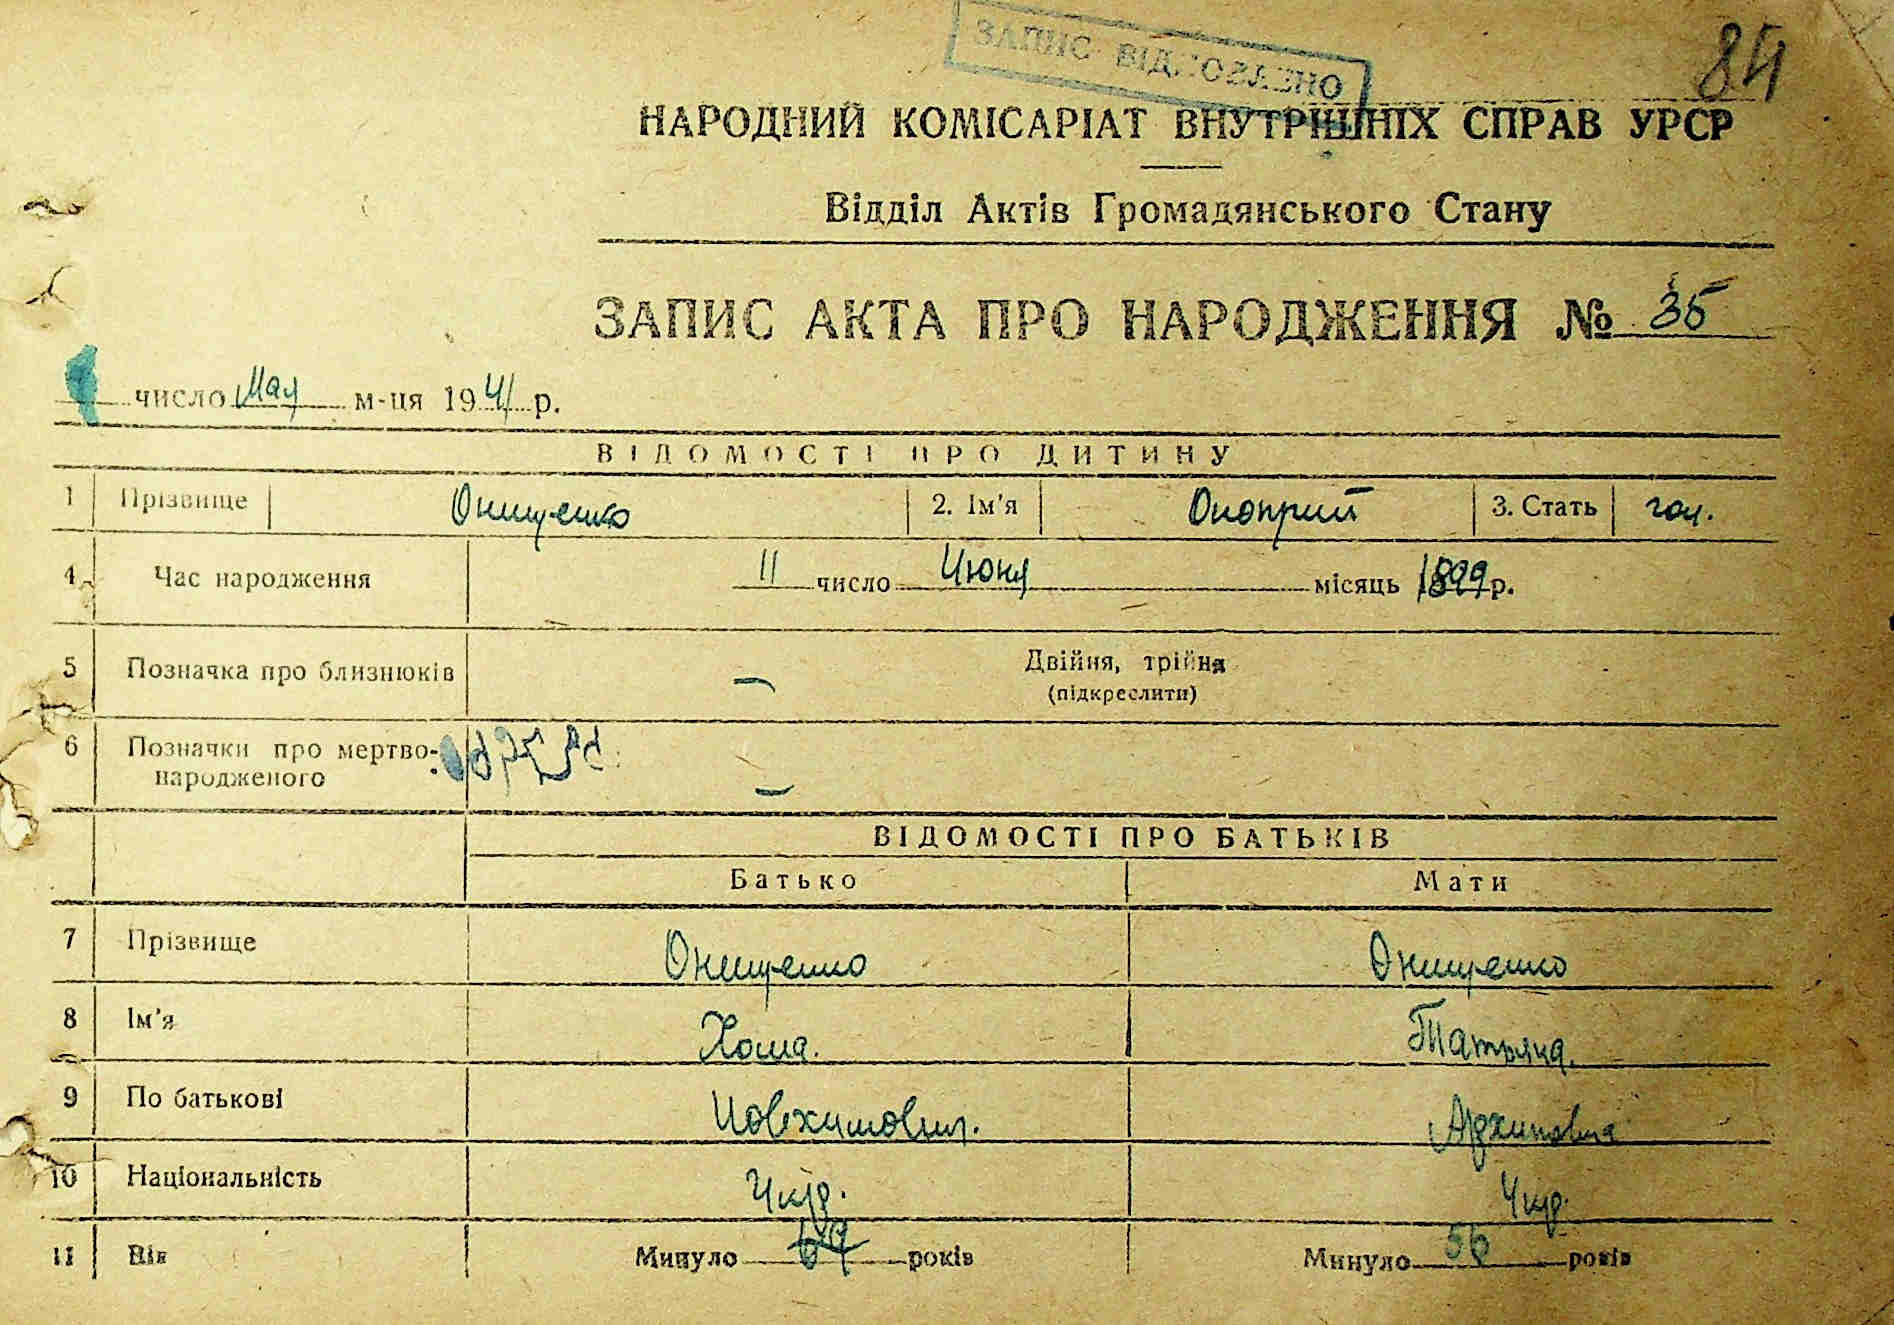 ЗАПИС ВІДНОВЛЕНО
84
НАРОДНИЙ КОМІСАРІАТ ВНУТРІШНІХ СПРАВ УРСР
Відділ Актів Громадянського Стану
ЗАПИС АКТА ПРО НАРОДЖЕННЯ № 35
число Мая м-ця 1941 р.
ВІДОМОСТІ ПРО ДИТИНУ
1 Прізвище Онищенко 2. Ім'я Оноприй 3. Стать чол.
4 Час народження 11 число Июня місяць 1899 р.
5 Позначка про близнюків — Двійня, трійня
(підкреслити)
6 Позначки про мертво-
народженого —
ВІДОМОСТІ ПРО БАТЬКІВ
Батько Мати
7 Прізвище Онищенко Онищенко
8 Ім'я Хома. Татьяна.
9 По батькові Иовхимович. Архиповна
10 Національність Укр. Укр.
11 Вік Минуло років Минуло 56 років